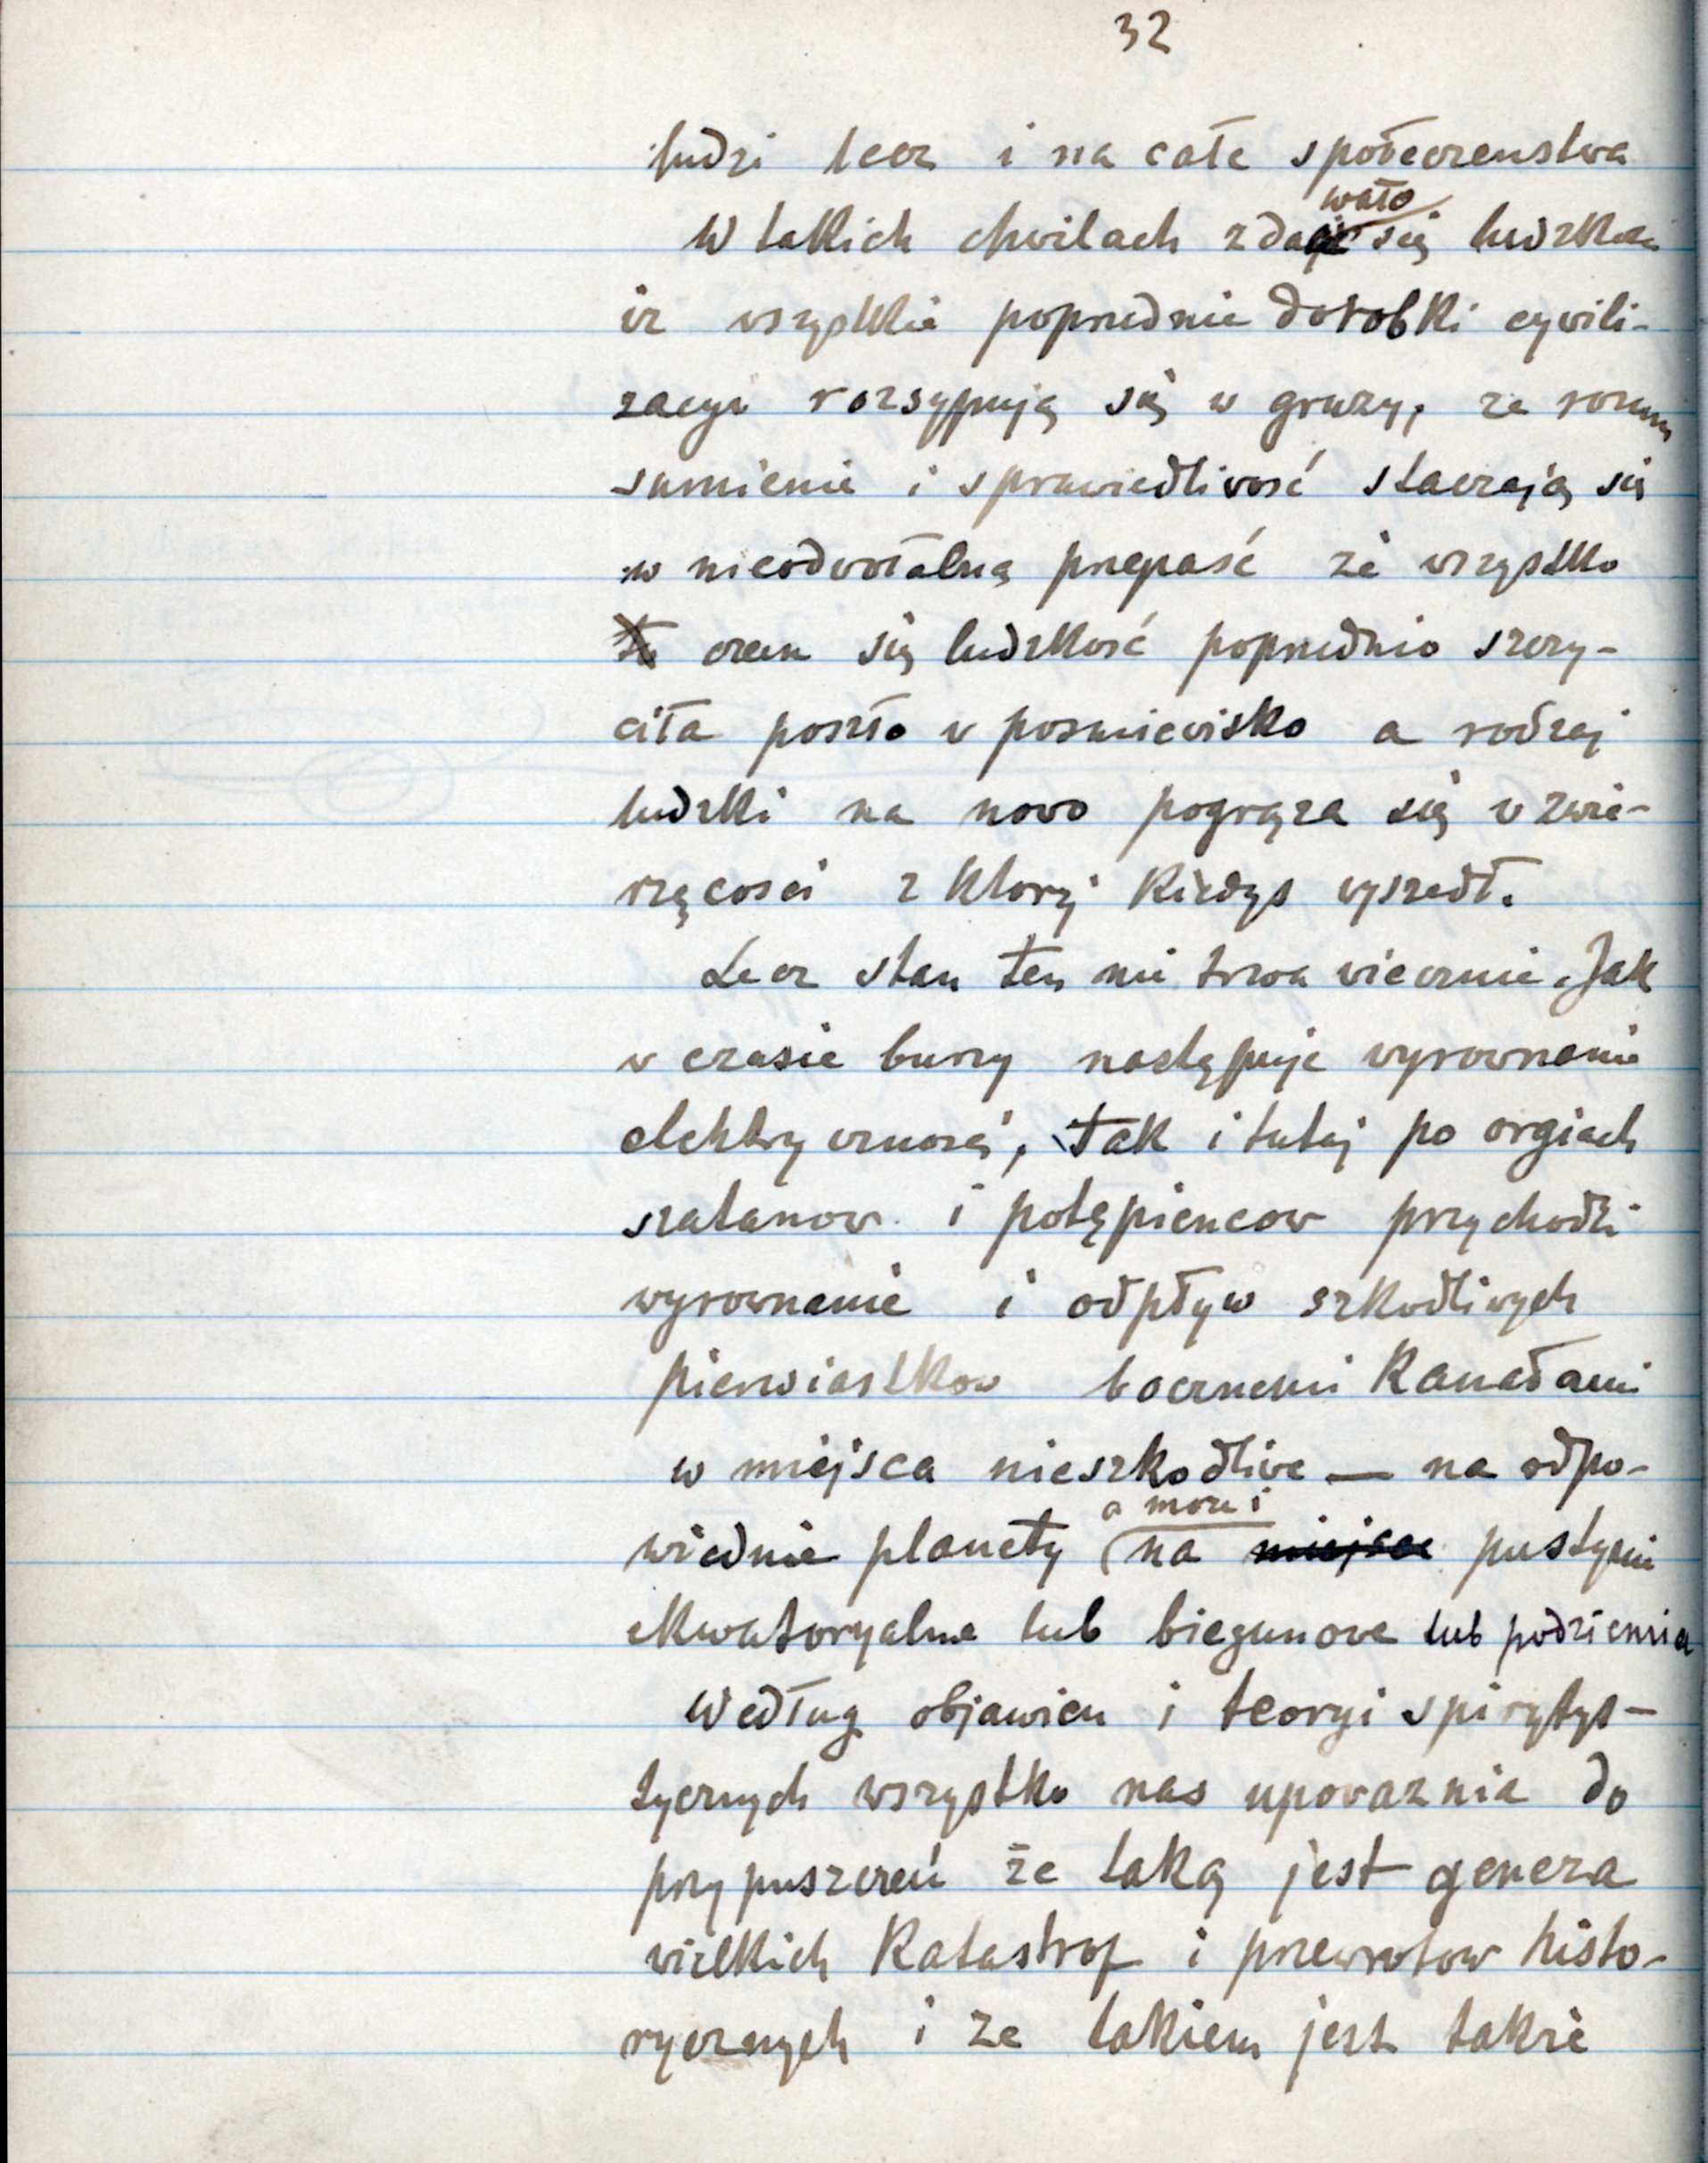 32
ludzi lecz i na całe społeczenstwa
wało
W takich chwilach zdaje się ludzkon
iż wszystkie poprzednie dorobki cywili-
zacyi rozsypują się w gruzy, ze rozum
sumienie i sprawiedliwość staczają się
w nieodwołalną przepaść że wszystko
to czem się ludzkość poprzednio szczy-
ciła poszło w posmiewisko a rodzaj
ludzki na nowo pogrąza się w zwie-
rzęcosci z ktorej kiedys wyszedł.
Lecz stan ten nie trwa wiecznie. Jak
w czasie burzy następuje wyrownanie
elektrycznosci, tak i tutaj po orgiach
szatanow i potępiencow przychodzi
wyrownanie i odpływ szkodliwych
pierwiastkow bocznemi kanałami
w miejsca nieszkodliwe — na odpo-
a moze i
wiednie planety (na miejsce pustynie
ekwatoryalne lub biegunowe lub podziemia
Według objawien i teoryi spirytys-
tycznych wszystko nas upowaznia do
przypuszczeń że taką jest geneza
wielkich katastrof i przewrotow histo-
rycznych i ze takiem jest takze